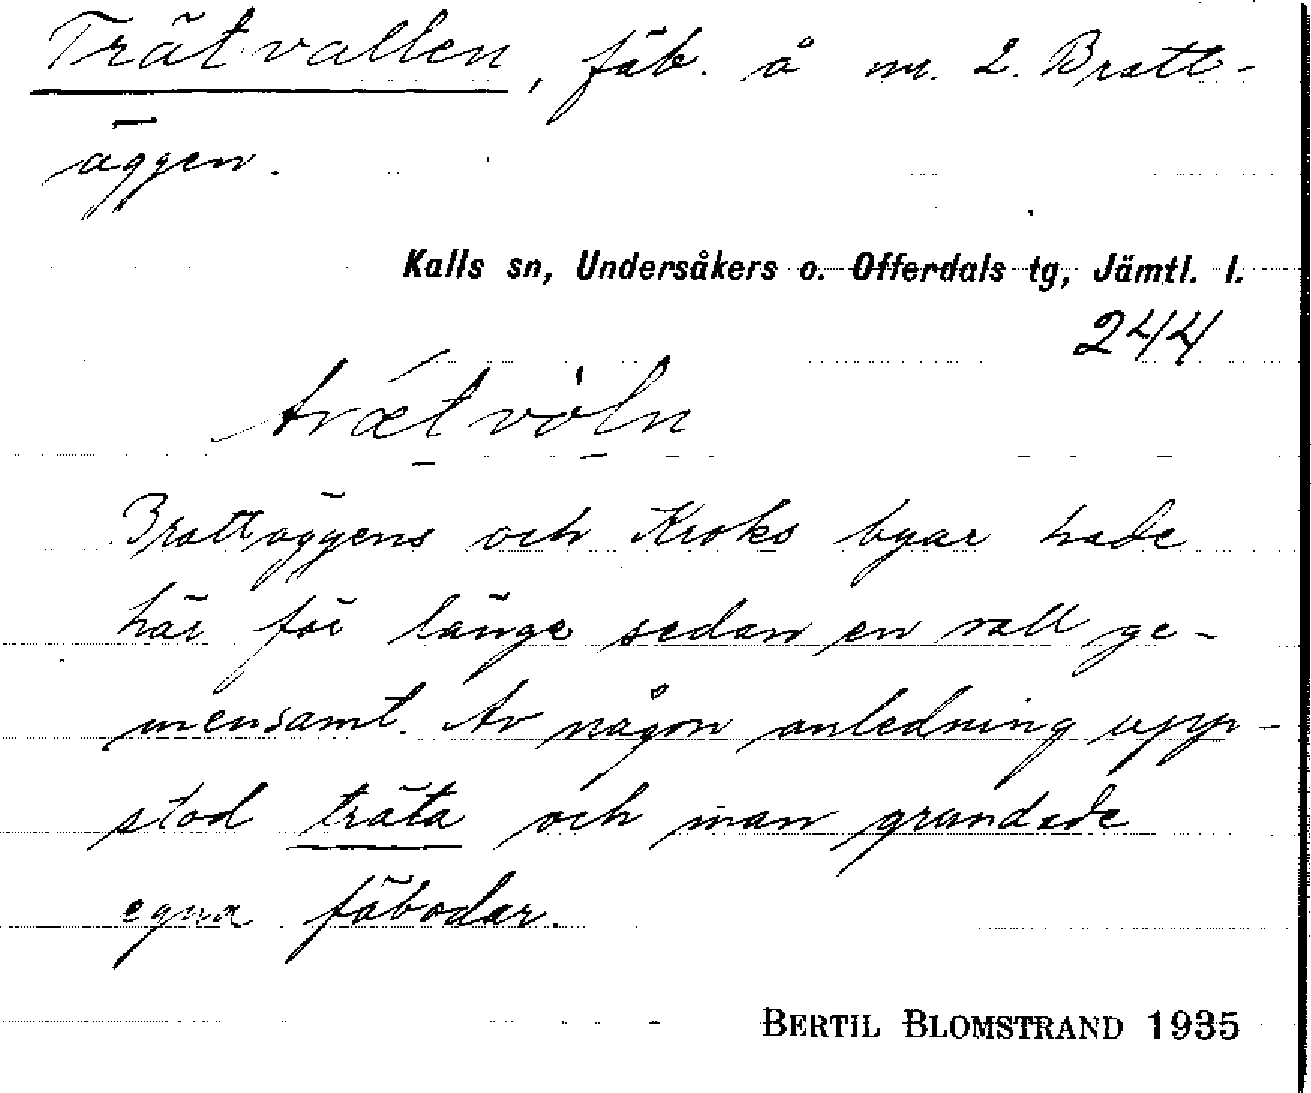 Trätvallen, fäb. å nr. 2. Bratt-
äggen.
Kalls sn, Undersåkers o. Offerdals tg, Jämtl. l.
244
trǽtvö̀ln
Brattäggens och Kroks byar hade
här för länge sedan en vall ge-
mensamt. Av någon anledning upp-
stod träta och man grundade
egna fäbodar.
BERTIL BLOMSTRAND 1935